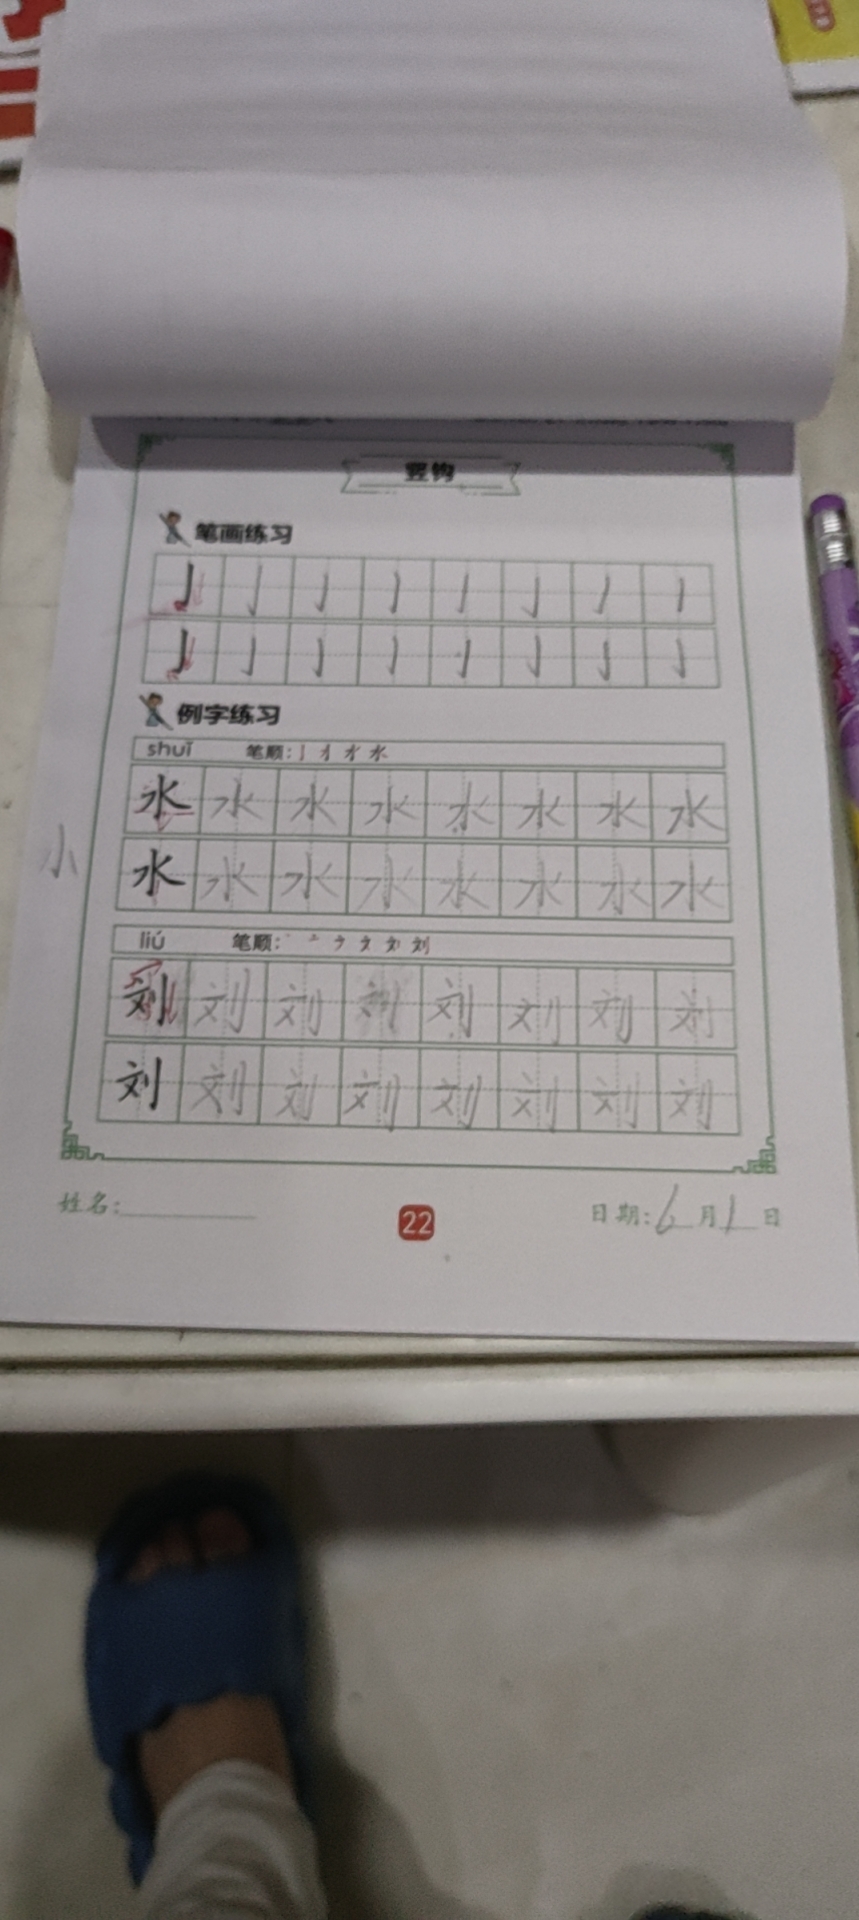 竖钩
笔画练习
亅 亅 亅 亅 亅 亅 亅 亅
亅 亅 亅 亅 亅 亅 亅 亅
例字练习
shuǐ 笔顺:
水 水 水 水 水 水 水 水
小
水 水 水 水 水 水 水 水
liú 笔顺:
刘 刘 刘 刘 刘 刘 刘 刘
刘 刘 刘 刘 刘 刘 刘 刘
姓名: 22 日期:6月1日